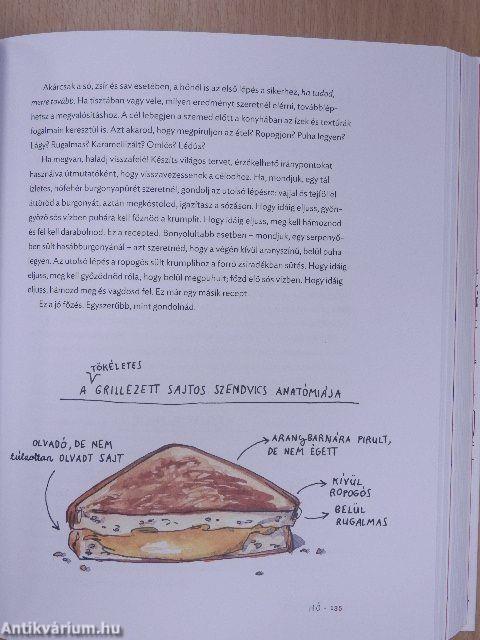 Akárcsak a só, zsír és sav esetében, a hőnél is az első lépés a sikerhez, ha tudod,
merre tovább. Ha tisztában vagy vele, milyen eredményt szeretnél elérni, továbblép-
hetsz a megvalósításhoz. A cél lebegjen a szemed előtt a konyhában az ízek és textúrák
fogalmain keresztül is. Azt akarod, hogy megpiruljon az étel? Ropogjon? Puha legyen?
Lágy? Rugalmas? Karamellizált? Omlós? Lédús?
Ha megvan, haladj visszafelé! Készíts világos tervet, érzékelhető iránypontokat
használva útmutatóként, hogy visszavezessenek a célodhoz. Ha, mondjuk, egy tál
ízletes, hófehér burgonyapürét szeretnél, gondolj az utolsó lépésre: vajjal és tejföllel
áttöröd a burgonyát, aztán megkóstolod, igazítasz a sózáson. Hogy idáig eljuss, gyön-
gyöző sós vízben puhára kell főznöd a krumplit. Hogy idáig eljuss, meg kell hámoznod
és fel kell darabolnod. Ez a recepted. Bonyolultabb esetben – mondjuk, egy serpenyő-
ben sült hasábburgonyánál – azt szeretnéd, hogy a végén kívül aranyszínű, belül puha
legyen. Az utolsó lépés a ropogós sült krumplihoz a forró zsiradékban sütés. Hogy idáig
eljuss, meg kell győződnöd róla, hogy belül megpuhult; főzd elő sós vízben. Hogy idáig
eljuss, hámozd meg és vagdosd fel. Ez már egy másik recept.
Ez a jó főzés. Egyszerűbb, mint gondolnád.
TÖKÉLETES
A GRILLEZETT SAJTOS SZENDVICS ANATÓMIÁJA
OLVADÓ, DE NEM
túlzottan OLVADT SAJT
ARANYBARNÁRA PIRULT,
DE NEM ÉGETT
KÍVÜL
ROPOGÓS
BELÜL
RUGALMAS
HŐ • 135
Antikvárium.hu